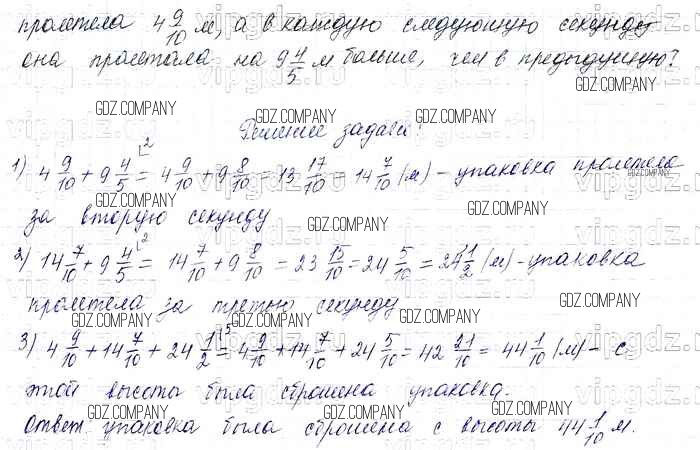 пролетела 4 9/10 м, а в каждую следующую секунду
она пролетала на 9 4/5 м больше, чем в предыдущую?
GDZ.COMPANY GDZ.COMPANY GDZ.COMPANY
Решение задачи:
1) 4 9/10 + 9 4/5 = 4 9/10 + 9 8/10 = 13 17/10 = 14 7/10 (м) – упаковка пролетела
GDZ.COMPANY GDZ.COMPANY GDZ.COMPANY
за вторую секунду
GDZ.COMPANY GDZ.COMPANY GDZ.COMPANY
2) 14 7/10 + 9 4/5 = 14 7/10 + 9 8/10 = 23 15/10 = 24 5/10 = 24 1/2 (м) – упаковка
GDZ.COMPANY GDZ.COMPANY GDZ.COMPANY
пролетела за третью секунду
GDZ.COMPANY GDZ.COMPANY GDZ.COMPANY
3) 4 9/10 + 14 7/10 + 24 1/2 = 4 9/10 + 14 7/10 + 24 5/10 = 42 21/10 = 44 1/10 (м) – с
GDZ.COMPANY GDZ.COMPANY GDZ.COMPANY
этой высоты была сброшена упаковка.
GDZ.COMPANY GDZ.COMPANY GDZ.COMPANY
Ответ: упаковка была сброшена с высоты 44 1/10 м.